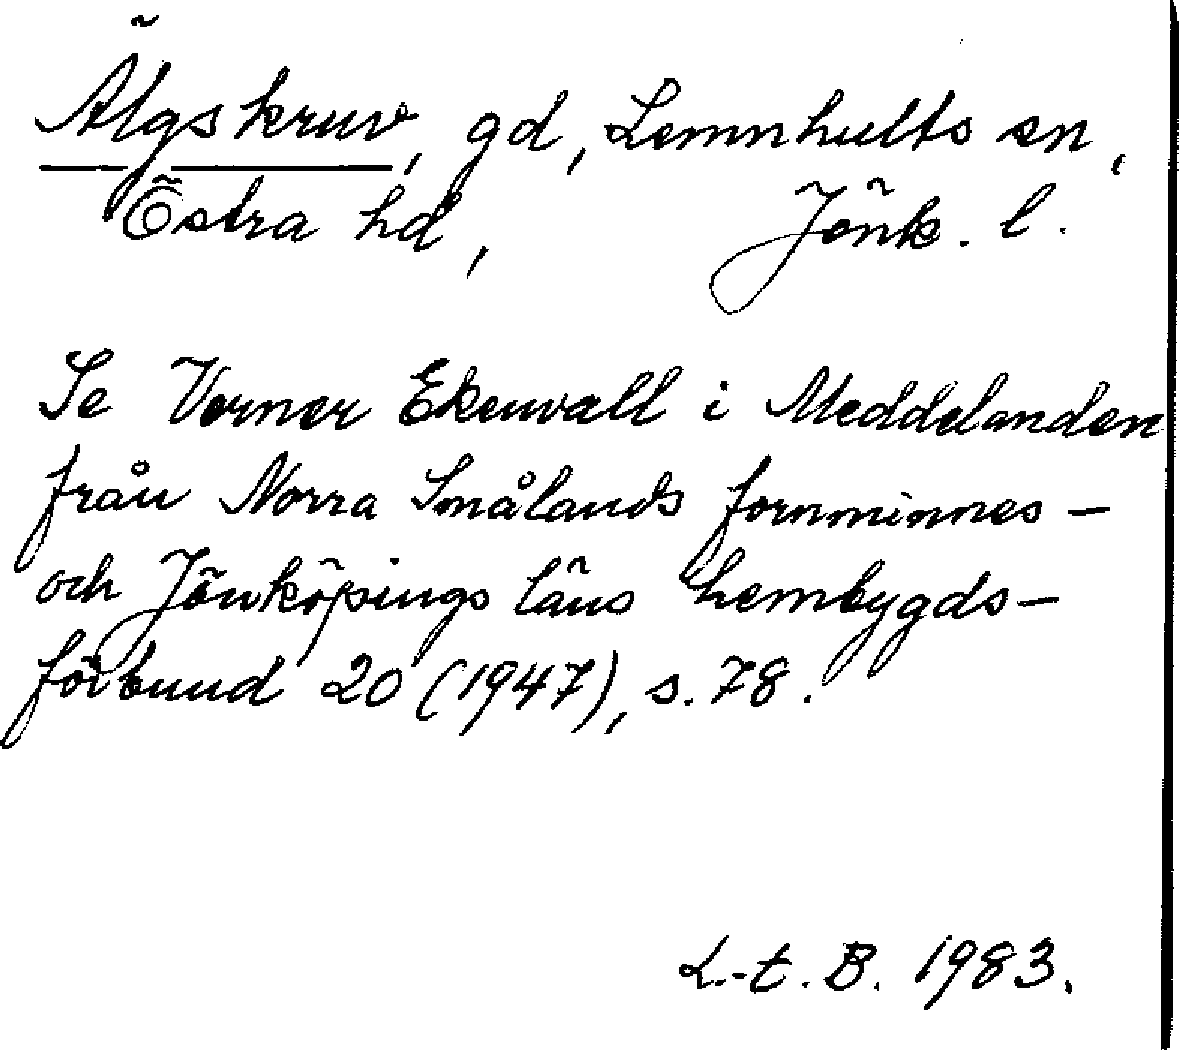 Älgskruv, gd, Lemnhults sn,
Östra hd, Jönk. l.
Se Verner Ekenvall i Meddelanden
från Norra Smålands fornminnes-
och Jönköpings läns hembygds-
förbund 20 (1947), s. 78.
L.-t. B. 1983.